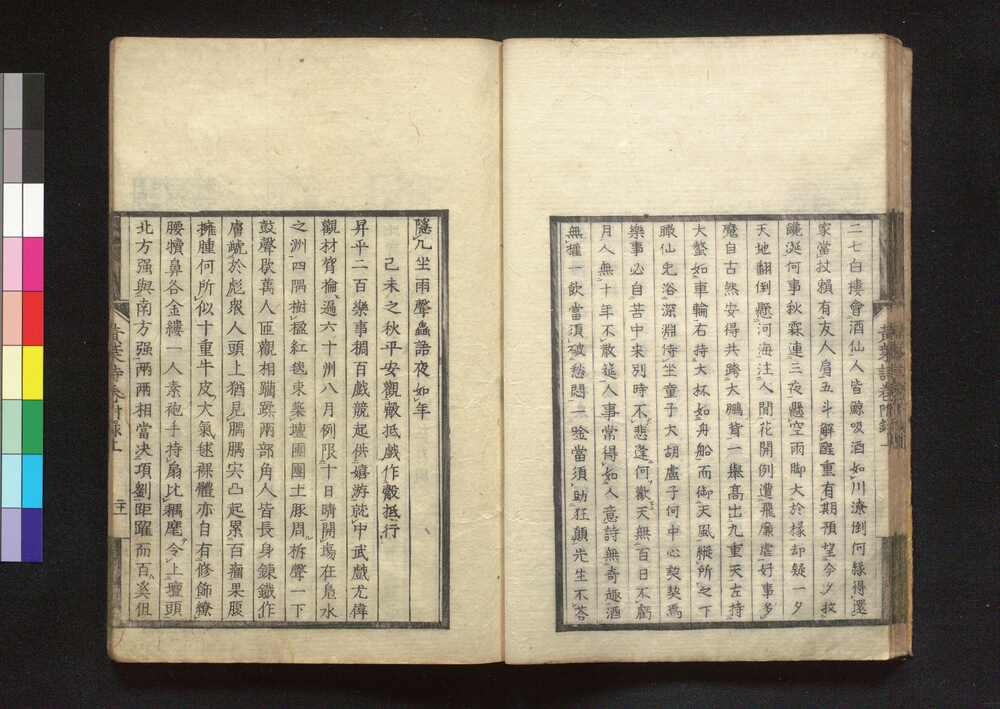 二七白摟會酒仙人皆鯨吸酒如川潦倒何縁得還
家當杖賴有友人肩五斗解酲重有期預望今夕投
饞涎何事秋霖連三夜懸空雨脚大於椽却疑一夕
天地翻倒懸河海注人間花開例遭飛廉虐好事多
魔自古然安得共跨大鵬背一擧髙出九重天左持
大螯如車輪右持大杯如舟船而御天風縱所之下
瞰仙児浴深淵侍坐童子大胡盧子何中心契契爲
樂事必自苦中来別時不悲逢何歡天無百日不虧
月人無十年不散筵人事常得如人意詩無奇趣酒
無權一飲當須破愁悶一唫當須助狂顛先生不答
隱几坐雨聲蟲語夜如年
己未之秋平安觀觳抵戯作觳抵行
昇平二百樂事稠百戯競起供嬉游就中武戯尤偉
觀材臂掄過六十州八月例限十日晴開塲在凫水
之洲四隅樹楹紅毯束築壇團團土豚周柝聲一下
鼓聲歇萬人匝觀相躪蹂兩部角人皆長身錬鐵作
膚虓於彪衆人頭上猶見腢腢宍凸起累百瘤果腹
擁腫何所似十重牛皮大氣毬裸體亦自有修飾繚
腰犢鼻各金縷一人素袍手持扇比耦麾令上壇頭
北方强與南方强兩兩相當决項劉距躍而百奚但
黄葉詩巻附録上
黄葉詩巻附録上